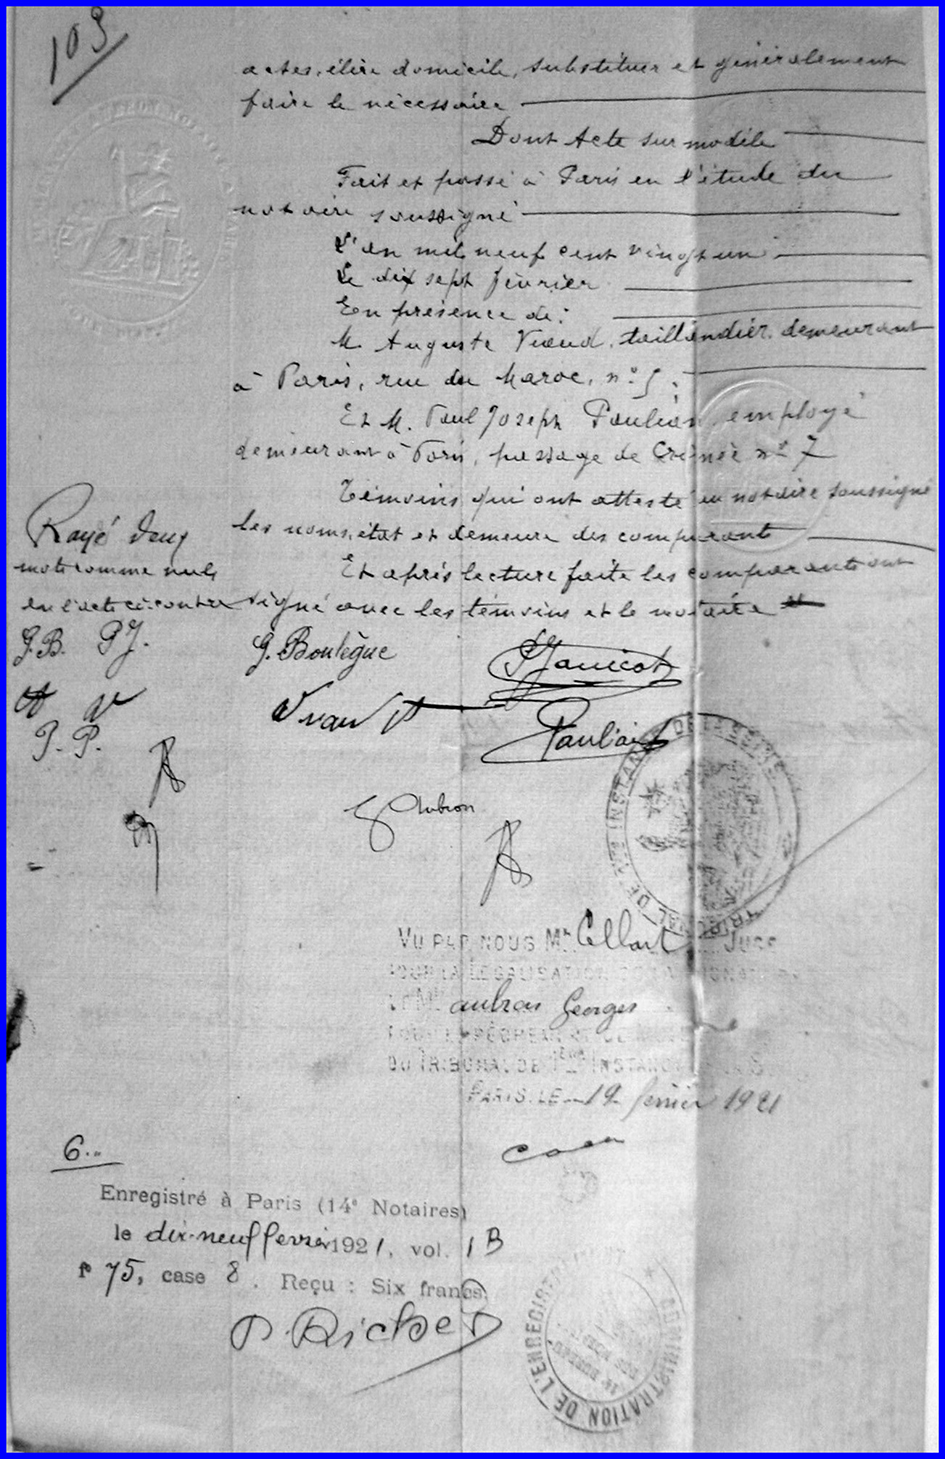 103
actes, élire domicile, substituer et généralement
faire le nécessaire
Dont Acte sur modèle
Fait et passé à Paris en l'étude du
notaire soussigné
L'an mil neuf cent vingt un
Le dix sept février
En présence de:
M. Auguste Viaud, taillandier, demeurant
à Paris, rue du Maroc, n° 5.
Et M. Paul Joseph Paulian, employé
demeurant à Paris, passage de Crimée n° 7
Témoins qui ont attesté au notaire soussigné
les noms, état et demeure des comparants
Et après lecture faite les comparants ont
signé avec les témoins et le notaire
Rayé deux
mots comme nuls
en l'acte ci-contre
G.B. PJ.
P. P.
G. Boulègue
PJanicot
Paulian
G Aubron
TRIBUNAL DE 1ère INSTANCE DE LA SEINE
VU PAR NOUS Mr Collart JUGE
POUR LA LEGALISATION DE LA SIGNATURE
DE Me aubron Georges
DU TRIBUNAL DE 1ère INSTANCE
PARIS, LE 19 février 1921
6.
Enregistré à Paris (14e Notaires)
le dix-neuf février 1921, vol. 1 B
F° 75, case 8. Reçu : Six francs.
P. Richer
ADMINISTRATION DE L'ENREGISTREMENT